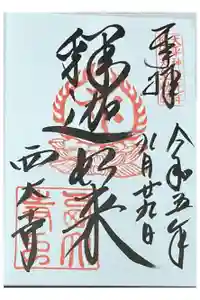 奉拝
令和五年
八月廿九日
釋迦如来
西大寺